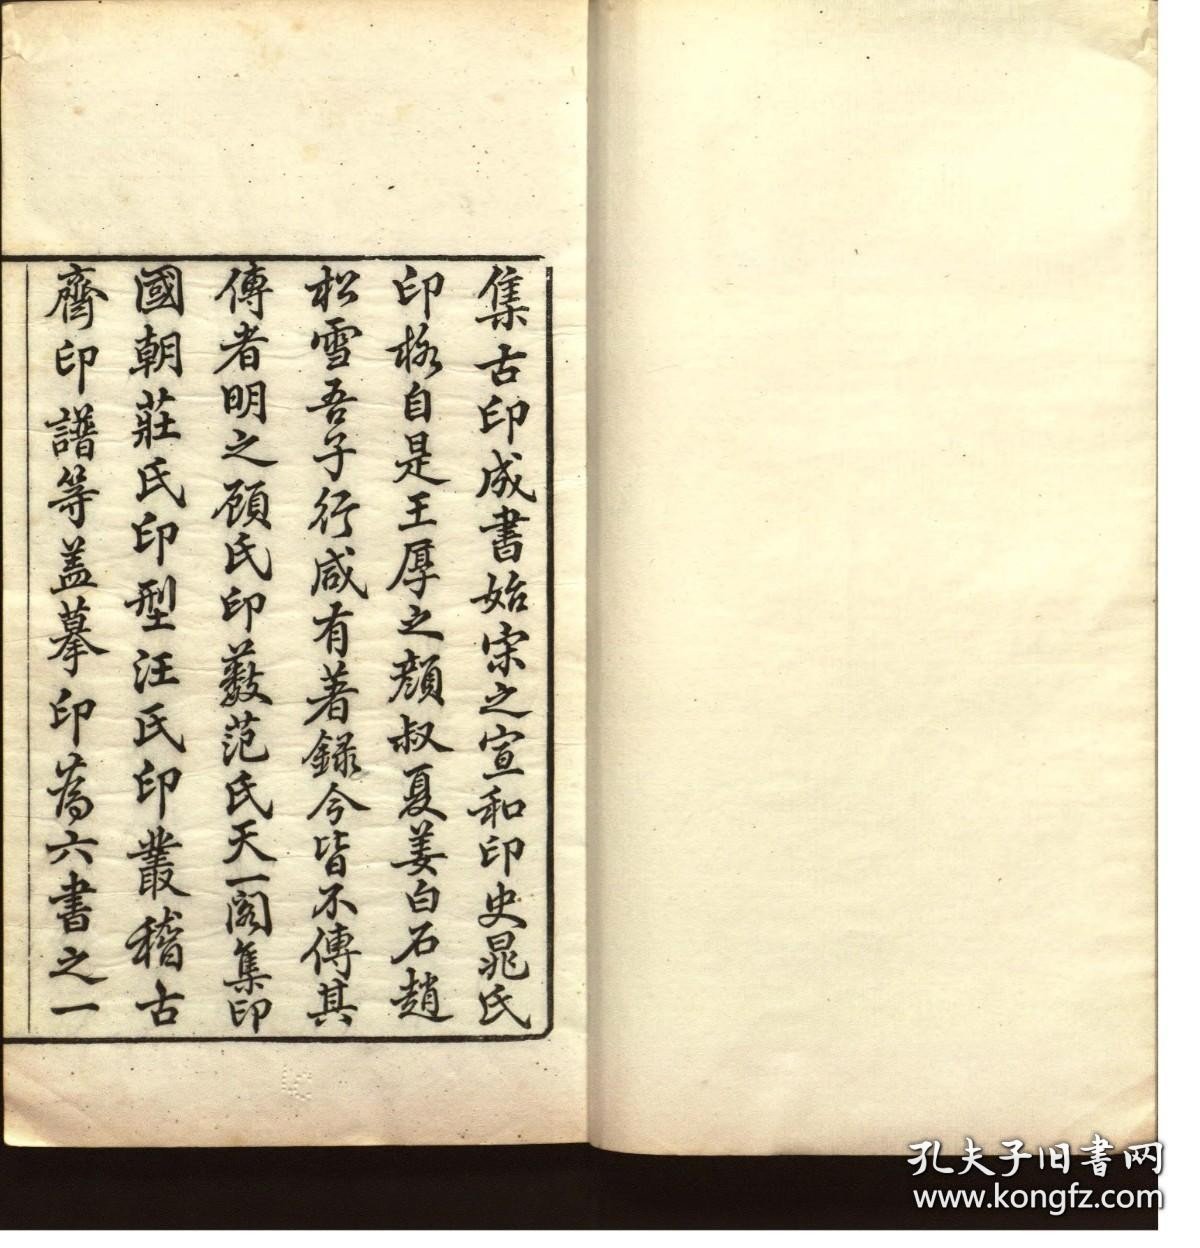 集古印成書始宋之宣和印史晁氏
印格自是王厚之顔叔夏姜白石趙
松雪吾子行咸有著錄今皆不傳其
傳者明之顧氏印藪范氏天一閣集印
國朝莊氏印型汪氏印叢稽古
齋印譜等蓋摹印為六書之一
孔夫子旧書网
www.kongfz.com